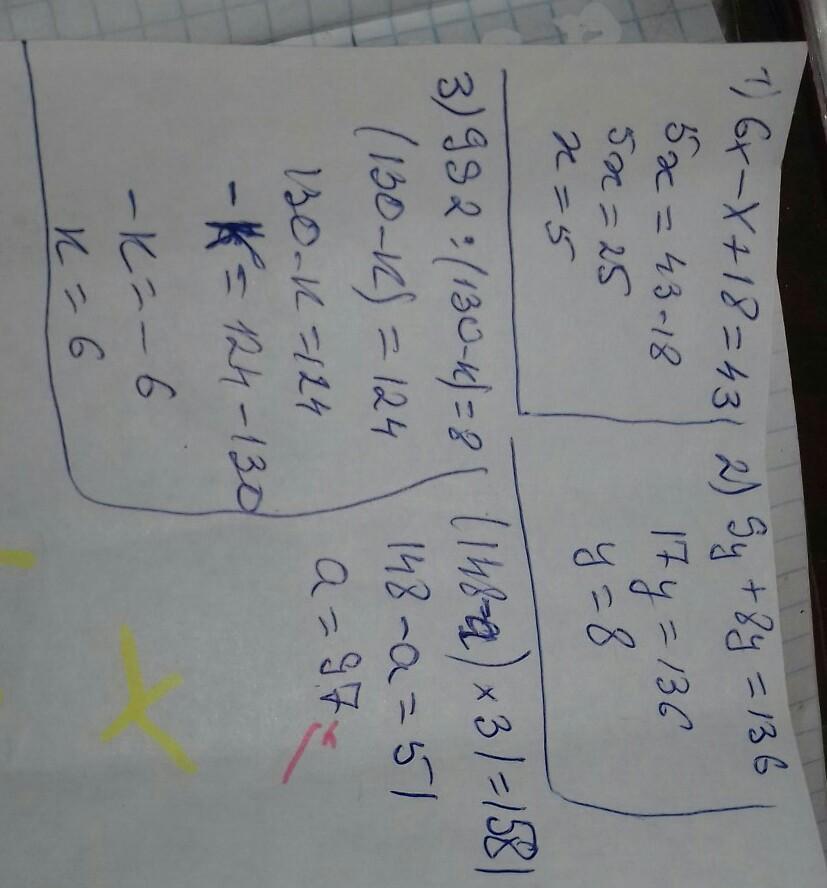 1) 6x-x+18=43
5x=43-18
5x=25
x=5
2) 9y+8y=136
17y=136
y=8
3) 992:(130-к)=8
(130-к)=124
130-к=124
-к=124-130
-к=-6
к=6
(148-a)×31=1581
148-a=51
a=97